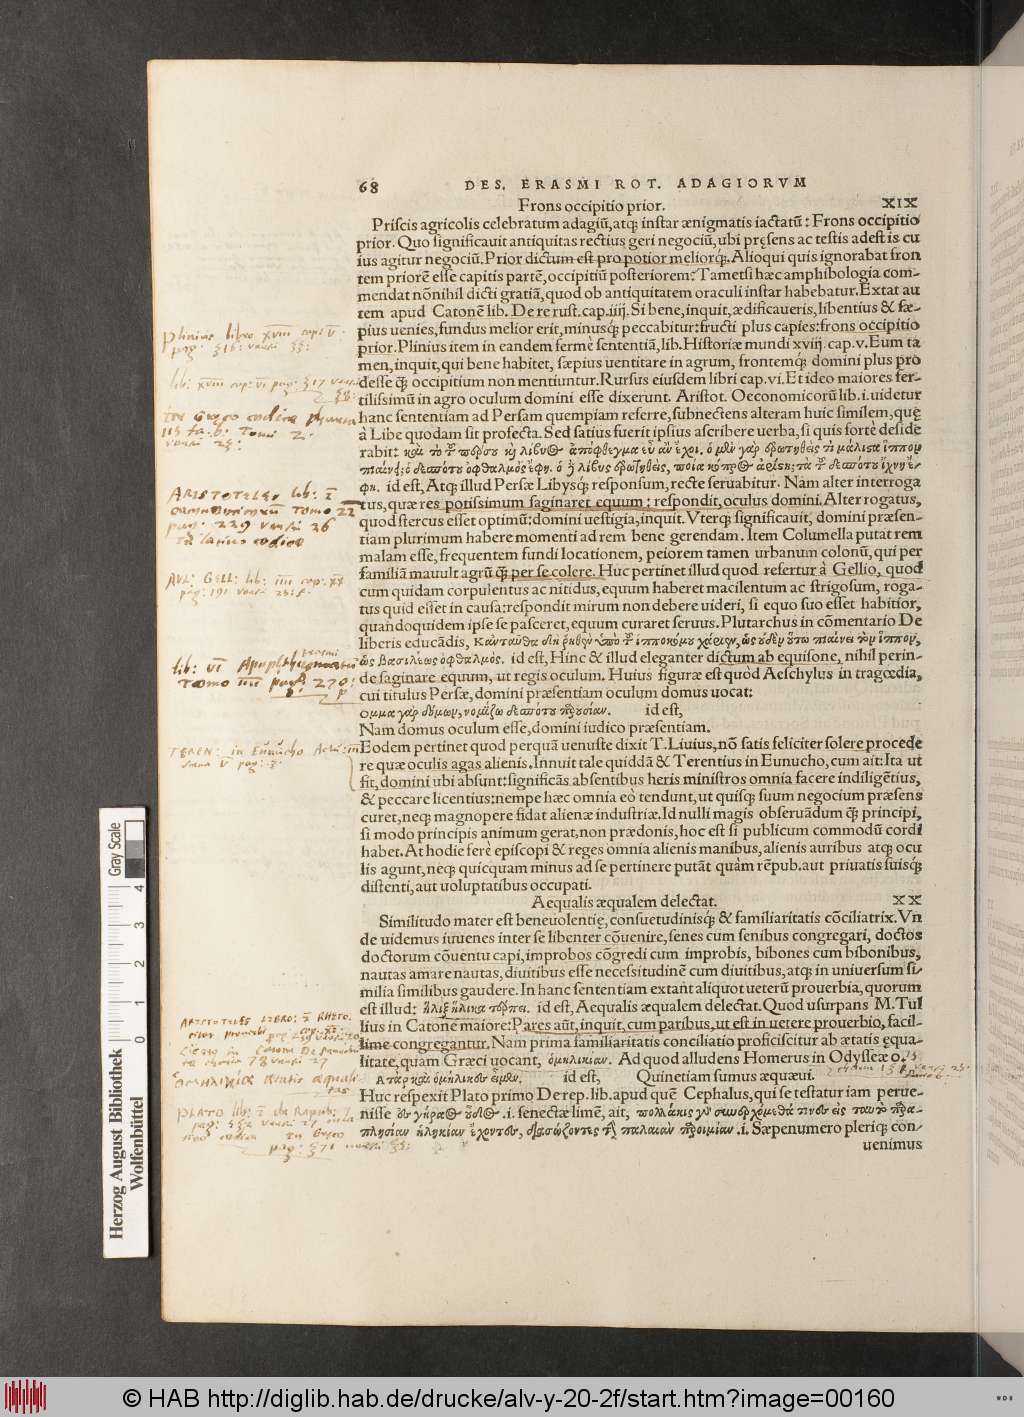 68 DES. ERASMI ROT. ADAGIORVM
Frons occipitio prior. XIX
Priscis agricolis celebratum adagiũ, atq; instar ænigmatis iactatũ: Frons occipitio
prior. Quo significauit antiquitas rectius geri negociũ, ubi pręsens ac testis adest is cu
ius agitur negociũ. Prior dictum est pro potior meliorq́;. Alioqui quis ignorabat fron
tem priorẽ esse capitis partẽ, occipitiũ posteriorem? Tametsi hæc amphibologia com-
mendat nõnihil dicti gratiã, quod ob antiquitatem oraculi instar habebatur. Extat au
tem apud Catonẽ lib. De re rust. cap. iiij. Si bene, inquit, ædificaueris, libentius & sæ-
pius uenies, fundus melior erit, minusq́; peccabitur: fructi plus capies: frons occipitio
prior. Plinius item in eandem fermè sententiã, lib. Historiæ mundi xviij. cap. v. Eum ta
men, inquit, qui bene habitet, sæpius uentitare in agrum, frontemq́; domini plus pro
desse q̃ occipitium non mentiuntur. Rursus eiusdem libri cap. vi. Et ideo maiores fer-
tilissimũ in agro oculum domini esse dixerunt. Aristot. Oeconomicorũ lib. i. uidetur
hanc sententiam ad Persam quempiam referre, subnectens alteram huic similem, quę
à Libe quodam sit profecta. Sed satius fuerit ipsius ascribere uerba, si quis fortè deside
rabit: καὶ τὸ τοῦ πέρσου καὶ λίβυος ἀπόφθεγμα εὖ ἂν ἔχοι. ὁ μὲν γὰρ ἐρωτηθεὶς τί μάλιστα ἵππον
πιαίνει; ὁ δεσπότου ὀφθαλμὸς ἔφη. ὁ δὲ λίβυς ἐρωτηθεὶς, ποία κόπρος ἀρίστη; τὰ τοῦ δεσπότου ἴχνη ἔ-
φη. id est, Atq; illud Persæ Libysq́; responsum, recte seruabitur. Nam alter interroga
tus, quæ res potissimum saginaret equum: respondit, oculus domini. Alter rogatus,
quod stercus esset optimũ: domini uestigia, inquit. Vterq; significauit, domini præsen-
tiam plurimum habere momenti ad rem bene gerendam. Item Columella putat rem
malam esse, frequentem fundi locationem, peiorem tamen urbanum colonũ, qui per
familiã mauult agrũ q̃ per se colere. Huc pertinet illud quod refertur à Gellio, quod
cum quidam corpulentus ac nitidus, equum haberet macilentum ac strigosum, roga-
tus quid esset in causa: respondit mirum non debere uideri, si equo suo esset habitior,
quandoquidem ipse se pasceret, equum curaret seruus. Plutarchus in cõmentario De
liberis educãdis, κἀνταῦθα δὴ ῥηθὲν ὑπὸ τοῦ ἱπποκόμου χάριεν, ὡς οὐδὲν οὕτω πιαίνει τὸν ἵππον,
ὡς βασιλέως ὀφθαλμός. id est, Hinc & illud eleganter dictum ab equisone, nihil perin-
de saginare equum, ut regis oculum. Huius figuræ est quòd Aeschylus in tragœdia,
cui titulus Persæ, domini præsentiam oculum domus uocat:
ὄμμα γὰρ δόμων, νομίζω δεσπότου παρουσίαν. id est,
Nam domus oculum esse, domini iudico præsentiam.
Eodem pertinet quod perquã uenuste dixit T. Liuius, nõ satis feliciter solere procede
re quæ oculis agas alienis. Innuit tale quiddã & Terentius in Eunucho, cum ait: Ita ut
fit, domini ubi absunt: significãs absentibus heris ministros omnia facere indiligẽtius,
& peccare licentius: nempe hæc omnia eò tendunt, ut quisq; suum negocium præsens
curet, neq; magnopere fidat alienæ industriæ. Id nulli magis obseruãdum q̃ principi,
si modo principis animum gerat, non prædonis, hoc est si publicum commodũ cordi
habet. At hodie ferè episcopi & reges omnia alienis manibus, alienis auribus atq; ocu
lis agunt, neq; quicquam minus ad se pertinere putãt quàm rẽpub. aut priuatis suisq́;
distenti, aut uoluptatibus occupati.
Aequalis æqualem delectat. XX
Similitudo mater est beneuolentię, consuetudinisq́; & familiaritatis cõciliatrix. Vn
de uidemus iuuenes inter se libenter cõuenire, senes cum senibus congregari, doctos
doctorum cõuentu capi, improbos cõgredi cum improbis, bibones cum bibonibus,
nautas amare nautas, diuitibus esse necessitudinẽ cum diuitibus, atq; in uniuersum si-
milia similibus gaudere. In hanc sententiam extant aliquot ueterũ prouerbia, quorum
est illud: ἧλιξ ἥλικα τέρπει. id est, Aequalis æqualem delectat. Quod usurpans M. Tul
lius in Catone maiore: Pares aũt, inquit, cum paribus, ut est in uetere prouerbio, facil-
lime congregantur. Nam prima familiaritatis conciliatio proficiscitur ab ætatis ęqua-
litate, quam Græci uocant, ὁμηλικίαν. Ad quod alludens Homerus in Odysseæ o.
Ἀτὰρ καὶ ὁμήλικες εἰμέν. id est, Quinetiam sumus æquæui.
Huc respexit Plato primo De rep. lib. apud quẽ Cephalus, qui se testatur iam perue-
nisse ἐν γήραος οὐδῷ .i. senectæ limẽ, ait, πολλάκις γὰρ συνερχόμεθά τινες εἰς ταυτὸ παρα-
πλησίαν ἡλικίαν ἔχοντες, διασώζοντες τὴν παλαιὰν παροιμίαν. i. Sæpenumero pleriq; con-
uenimus
Plinius libro xviii cap: v
pag: 516: versu 55:
lib: xviii cap: vi pag: 517
ARISTOTELES lib: I
Tomo
pag: 229 versu 36
AVL: GELL: lib: IIII cap: XX
pag: 191
lib: VI Apophthegmatum
Tomo IIII pag: 270:
TEREN: in Eunucho
ARISTOTELES LIBRO: I RHETO.
PLATO lib: I de Repub:
Gray Scale
0 1 2 3 4
Herzog August Bibliothek
Wolfenbüttel
© HAB http://diglib.hab.de/drucke/alv-y-20-2f/start.htm?image=00160